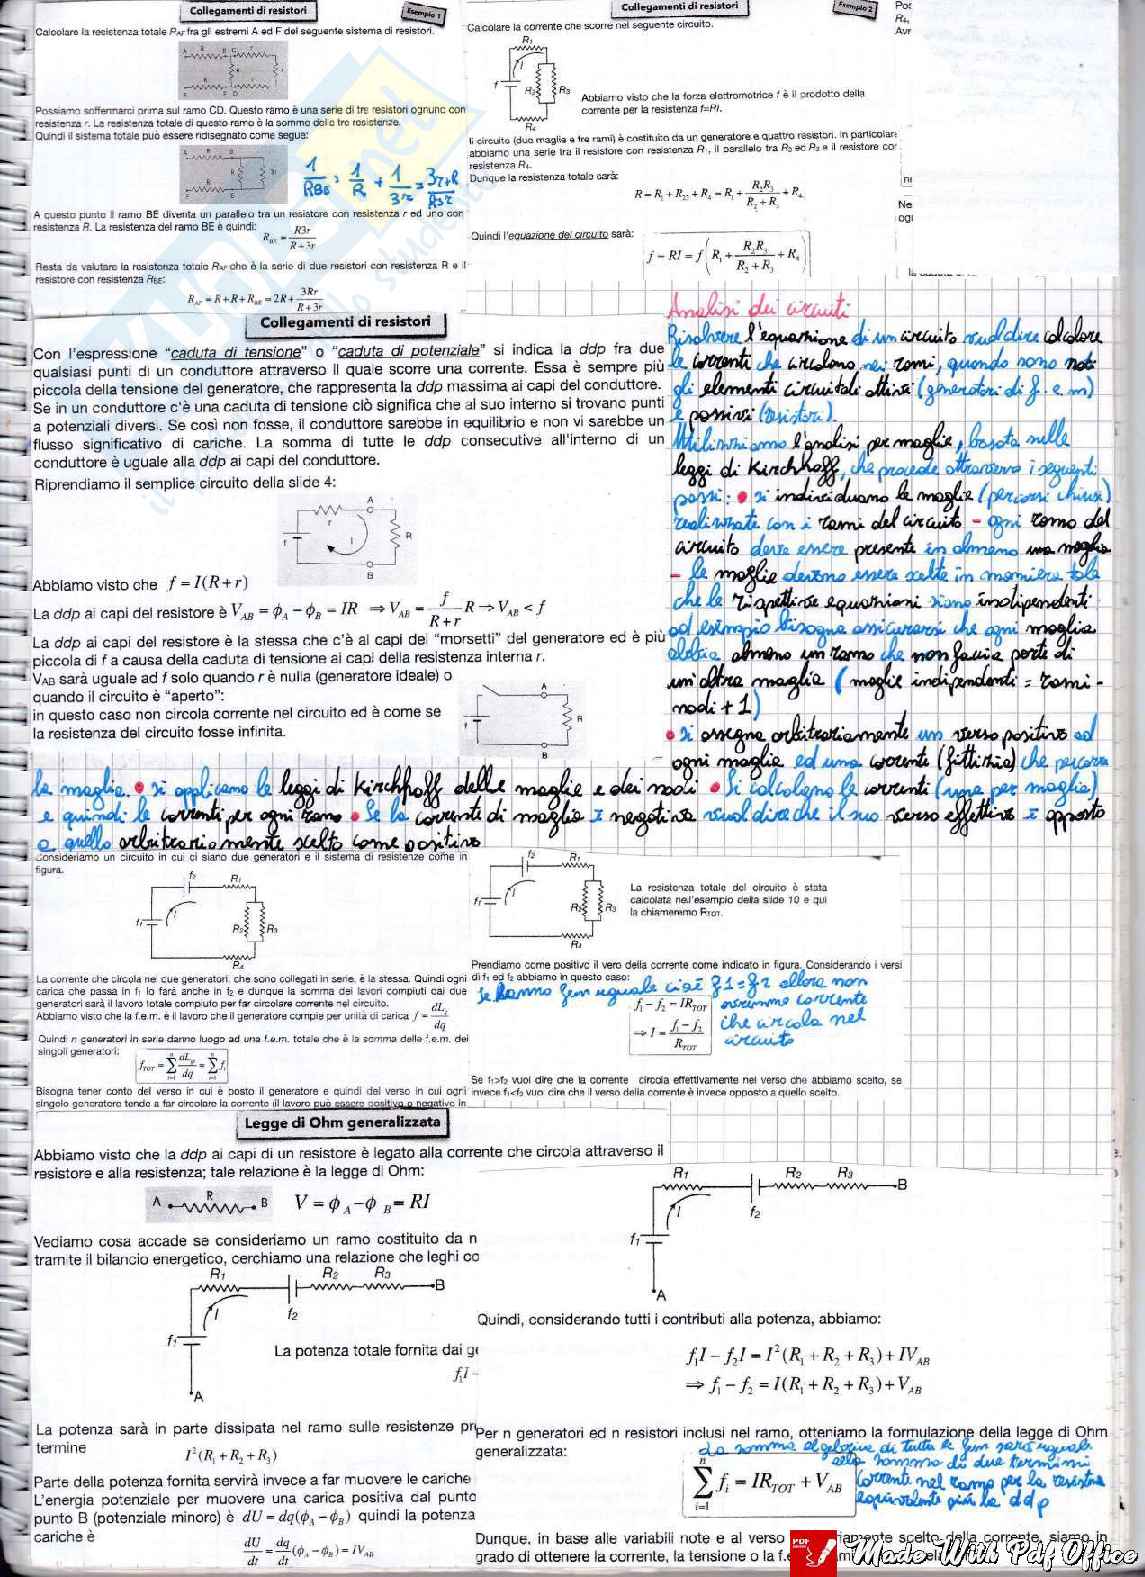 Collegamenti di resistori
Esempio 1
Calcolare la resistenza totale RAF fra gli estremi A ed F del seguente sistema di resistori.
Possiamo soffermarci prima sul ramo CD. Questo ramo è una serie di tre resistori ognuno con
resistenza r. La resistenza totale di questo ramo è la somma delle tre resistenze.
Quindi il sistema totale può essere ridisegnato come segue:
1/RBE = 1/R + 1/3r = 3r+R/R3r
A questo punto il ramo BE diventa un parallelo tra un resistore con resistenza r ed uno con
resistenza R. La resistenza del ramo BE è quindi: RBE = R3r/R+3r
Resta da valutare la resistenza totale RAF che è la serie di due resistori con resistenza R e il
resistore con resistenza RBE:
RAF = R+R+RBE = 2R + 3Rr/R+3r
Collegamenti di resistori
Esempio 2
Calcolare la corrente che scorre nel seguente circuito.
R1
f
I
R2
R3
R4
Abbiamo visto che la forza elettromotrice f è il prodotto della
corrente per la resistenza f=RI.
Il circuito (due maglie e tre rami) è costituito da un generatore e quattro resistori. In particolare
abbiamo una serie tra il resistore con resistenza R1, il parallelo tra R2 ed R3 e il resistore con
resistenza R4.
Dunque la resistenza totale sarà:
R = R1 + R23 + R4 = R1 + R2R3/R2+R3 + R4
Quindi l'equazione del circuito sarà:
Collegamenti di resistori
Con l'espressione “caduta di tensione” o “caduta di potenziale” si indica la ddp fra due
qualsiasi punti di un conduttore attraverso il quale scorre una corrente. Essa è sempre più
piccola della tensione del generatore, che rappresenta la ddp massima ai capi del conduttore.
Se in un conduttore c'è una caduta di tensione ciò significa che al suo interno si trovano punti
a potenziali diversi. Se così non fosse, il conduttore sarebbe in equilibrio e non vi sarebbe un
flusso significativo di cariche. La somma di tutte le ddp consecutive all'interno di un
conduttore è uguale alla ddp ai capi del conduttore.
Riprendiamo il semplice circuito della slide 4:
A
r
f
I
R
B
Abbiamo visto che f = I(R+r)
La ddp ai capi del resistore è VAB = ϕA − ϕB = IR ⇒ VAB = f/R+r R → VAB < f
La ddp ai capi del resistore è la stessa che c'è ai capi dei “morsetti” del generatore ed è più
piccola di f a causa della caduta di tensione ai capi della resistenza interna r.
VAB sarà uguale ad f solo quando r è nulla (generatore ideale) o
quando il circuito è “aperto”:
in questo caso non circola corrente nel circuito ed è come se
la resistenza del circuito fosse infinita.
A
f
R
B
Analisi dei circuiti
Risolvere l'equazione di un circuito vuol dire calcolare
le correnti che circolano nei rami, quando sono noti
gli elementi circuitali attivi (generatori di f.e.m)
e passivi (resistori).
Utilizziamo l'analisi per maglie, basata sulle
leggi di Kirchhoff, che procede attraverso i seguenti
passi: • si individuano le maglie (percorsi chiusi)
realizzate con i rami del circuito - ogni ramo del
circuito deve essere presente in almeno una maglia
- le maglie devono essere scelte in maniera tale
che le rispettive equazioni siano indipendenti
ad esempio bisogna assicurarsi che ogni maglia
abbia almeno un ramo che non faccia parte di
un'altra maglia (maglie indipendenti = rami -
nodi + 1)
• si assegna arbitrariamente un verso positivo ad
ogni maglia ed una corrente (fittizia) che percorre
la maglia. • si applicano le leggi di Kirchhoff delle maglie e dei nodi • Si calcolano le correnti (una per maglia)
e quindi le correnti per ogni ramo • Se la corrente di maglia è negativa vuol dire che il suo verso effettivo è opposto
a quello arbitrariamente scelto come positivo
Consideriamo un circuito in cui ci siano due generatori e il sistema di resistenze come in
figura.
f2
R1
f1
I
R2
R3
R4
La corrente che circola nei due generatori, che sono collegati in serie, è la stessa. Quindi ogni
carica che passa in f1 lo farà anche in f2 e dunque la somma dei lavori compiuti dai due
generatori sarà il lavoro totale compiuto per far circolare corrente nel circuito.
Abbiamo visto che la f.e.m. è il lavoro che il generatore compie per unità di carica
Quindi n generatori in serie danno luogo ad una f.e.m. totale che è la somma delle f.e.m. dei
singoli generatori:
Bisogna tener conto del verso in cui è posto il generatore e quindi del verso in cui ogni
singolo generatore tende a far circolare la corrente (il lavoro può essere positivo o negativo in
f2
R1
f1
I
R2
R3
R4
La resistenza totale del circuito è stata
calcolata nell'esempio della slide 10 e qui
la chiameremo RTOT.
Prendiamo come positivo il vero della corrente come indicato in figura. Considerando i versi
di f1 ed f2 abbiamo in questo caso:
Se hanno fem uguale cioè f1=f2 allora non
avremmo corrente
che circola nel
circuito
f1 − f2 = IRTOT
⇒ I = f1 − f2/RTOT
Se f1>f2 vuol dire che la corrente circola effettivamente nel verso che abbiamo scelto, se
invece f1<f2 vuol dire che il verso della corrente è invece opposto a quello scelto.
Legge di Ohm generalizzata
Abbiamo visto che la ddp ai capi di un resistore è legato alla corrente che circola attraverso il
resistore e alla resistenza; tale relazione è la legge di Ohm:
A R B V = ϕA − ϕB = RI
Vediamo cosa accade se consideriamo un ramo costituito da n
tramite il bilancio energetico, cerchiamo una relazione che leghi co
R1 R2 R3 B
I
f2
f1
A
La potenza totale fornita dai ge
f1I −
La potenza sarà in parte dissipata nel ramo sulle resistenze pr
termine
I²(R1 + R2 + R3)
Parte della potenza fornita servirà invece a far muovere le cariche
L'energia potenziale per muovere una carica positiva dal punto
punto B (potenziale minore) è dU = dq(ϕA − ϕB) quindi la potenza
cariche è
dU/dt = dq/dt (ϕA − ϕB) = iVAB
R1 R2 R3 B
I
f2
f1
A
Quindi, considerando tutti i contributi alla potenza, abbiamo:
f1I − f2I = I²(R1 + R2 + R3) + IVAB
⇒ f1 − f2 = I(R1 + R2 + R3) + VAB
Per n generatori ed n resistori inclusi nel ramo, otteniamo la formulazione della legge di Ohm
generalizzata:
La somma algebrica di tutte le fem sarà uguale
alla somma di due termini
corrente nel ramo per la resistenza
equivalente più la ddp
∑ fi = IRTOT + VAB
Dunque, in base alle variabili note e al verso
scelto della corrente, siamo in
grado di ottenere la corrente, la tensione o la f.e.
Made With Pdf Office